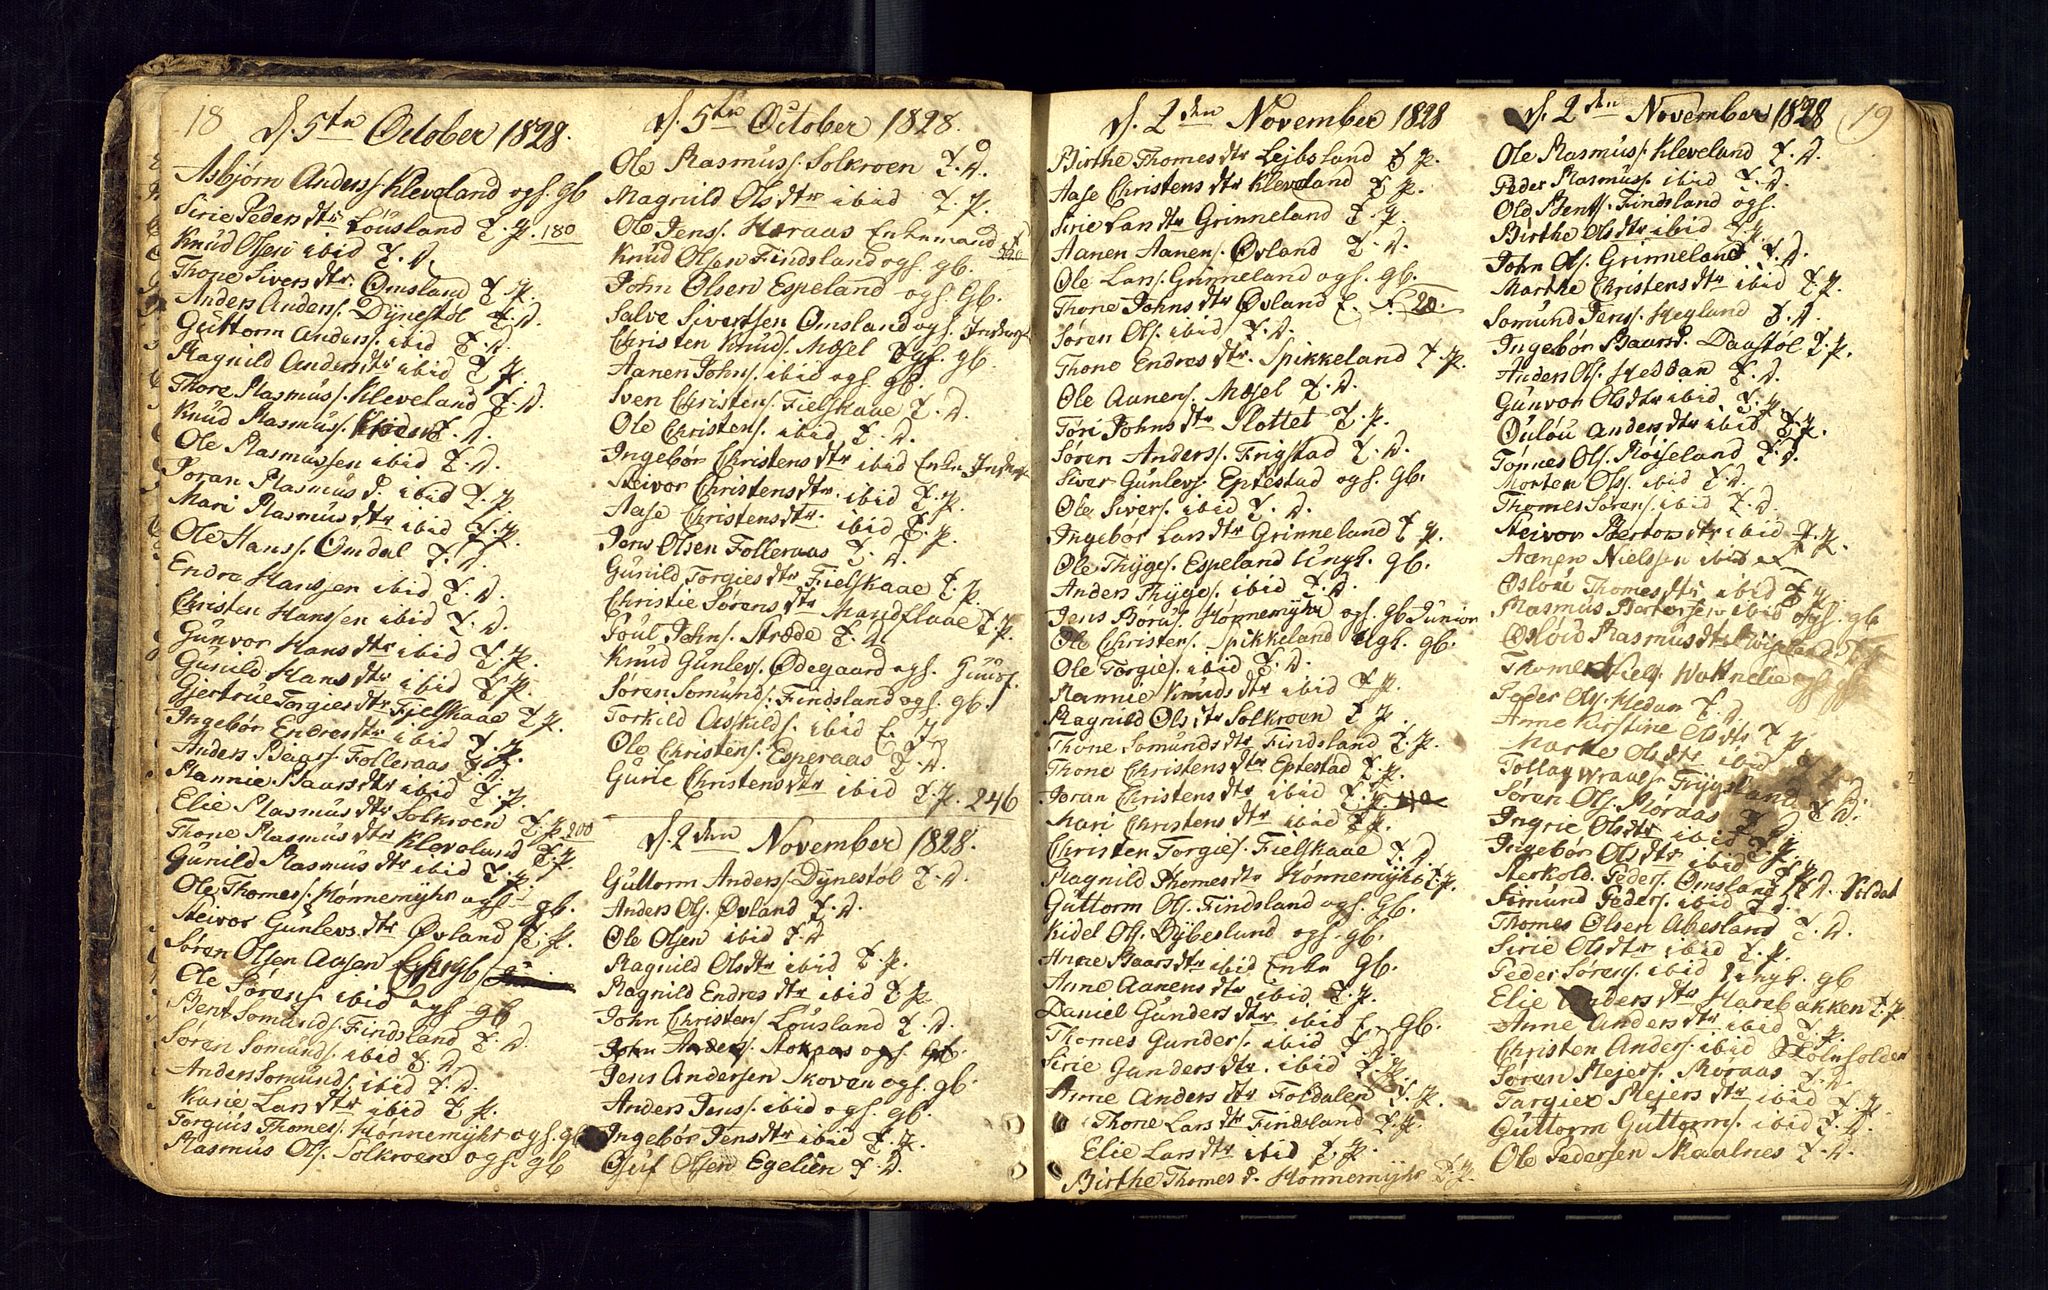 18
d. 5te October 1828.
Asbjørn Anders. Kleveland ogs. gb
Sirie Peders dtr Lóusland T. P. 180
Knud Olsen ibid T. D.
Thone Sivers dtr. Omsland T. P.
Anders Anders. Dynestøl T. D.
Guttorm Anders. ibid T. D.
Ragnild Anders dtr ibid T. P.
Thore Rasmus. Kleveland T. D.
Knud Rasmus. T. D.
Ole Rasmussen ibid T. D.
Joran Rasmus d. ibid T. P.
Mari Rasmus dtr ibid T. P.
Ole Hans. Omdal T. D.
Endre Hanssen ibid T. D.
Christen Hanssen ibid T. D.
Gunvor Hans dtr ibid T. P.
Gunild Hans dtr ibid T. P.
Gjertrue Torgies dtr Fjelskaae T. P.
Ingebor Endres dtr ibid T. P.
Anders Baars. Folleraas T. D.
Rannie Baars dtr ibid T. P.
Elie Rasmus dtr Solkroen T. P. 200
Thone Rasmus dtr Kleveland T. P.
Gunild Rasmus dtr ibid T. P.
Ole Thomes. Hónnemyhr ogs. gb.
Steivor Gunlevs. dtr Øvland T. P.
Søren Olsen Aasen
Ole Sørens. ibid ogs gb
Bent Somunds. Findsland T. D.
Søren Somunds. ibid T. D.
Anders Somunds. ibid T. D.
Karie Lars dtr ibid T. P.
Torguis Thomes. Hónnemyhr ogs. gb
Rasmus Ols. Solkroen ogs. gb
d. 5te October 1828.
Ole Rasmus. Solkroen T. D.
Magnild Ols dtr ibid T. P.
Ole Jens. Haraas Enkemand
Knud Olsen Findsland ogs. gb.
John Olsen Espeland ogs. gb.
Salve Sivertsen Omsland ogs.
Christen Knuds. Mosel ogs. gb.
Aanen Johns. ibid ogs. gb.
Sven Christens. Fielskaae T. D.
Ole Christens. ibid T. D.
Ingebor Christens dtr ibid Enke
Steivor Christens dtr. ibid T. P.
Aase Christens dtr. ibid T. P.
Jens Olsen Folleraas T. D.
Gunild Torgies dtr Fielskaae T. P.
Christie Sørens dtr Mandflaae T. P.
Poul Johns. Stræde T. D.
Knud Gunlevs. Ødegaard ogs.
Søren Somunds. Findsland ogs. gb.
Torkild Askilds. ibid
Ole Christens. Esperaas T. D.
Gurie Christens dtr ibid T. P. 246
d. 2den November 1828.
Guttorm Anders. Dynestøl T. D.
Anders Ols. Øvland T. D.
Ole Olsen ibid T. D
Ragnild Ols dtr ibid T. P.
Ragnild Endres dtr ibid T. P
John Christens. Lóusland T. D.
John Anders. Stokaas ogs. gb.
Jens Andersen Skoven ogs. gb.
Anders Jenss. ibid ogs. gb.
Ingebor Jens dtr ibid T. P.
Oluf Olsen Egelien T. D.
d. 2den November 1828
Birthe Thomes dtr Lejbsland T. P.
Aase Christens dtr Kleveland T. P.
Sirie Lars dtr Grinneland T. P.
Aanen Aanens. Øvland T. D.
Ole Lars. Grinneland ogs. gb.
Thone Johns dtr Øvland 20.
Søren Ols. ibid T. D.
Thone Endres dtr. Spikkeland T. P.
Ole Aanens. Mosel T. D.
Tóri Johns dtr Slottet T. P.
Søren Anders. Frigstad T. D.
Siver Gunlevs. Eptestad ogs. gb.
Ole Sivers. ibid T. D.
Ingebor Lars dtr Grinneland T. P.
Ole Thyges. Espeland Ungk. gb.
Anders Thyges. ibid T. D.
Jens Bórús. Hónnemyhr ogs. gb Junior
Ole Christens. Spikkeland gb.
Ole Torgies. ibid T. D.
Rannie Knuds dtr ibid T. P.
Ragnild Ols dtr Solkroen T. P.
Thone Somunds dtr Findsland T. P.
Thone Christens dtr Eptestad T. P.
Joran Christens dtr ibid T. P.
Mari Christens dtr ibid T. P.
Christen Torgies. Fielskaae T. D.
Ragnild Thomes dtr Hónnemyhr T. P.
Guttorm Ols. Findsland ogs. gb.
Kidel Ols. Dybesland ogs. gb.
Anne Baars dtr ibid Enke gb.
Anne Aanens dtr ibid T. P.
Daniel Gunders dtr ibid gb.
Thomes Gunders. ibid T. D
Sirie Gunders dtr. ibid T. P
Anne Anders dtr Foldalen T. P.
Thone Lars dtr Findsland T. P.
Elie Lars dtr ibid T. P.
Birthe Thomes d. Hónnemyhr T. P.
d. 2den November 1828
19
Ole Rasmus. Kleveland T. D.
Peder Rasmus. ibid T. D.
Ole Bents. Findsland ogs.
Birthe Ols dtr ibid T. P.
John Ols. Grinneland T. D.
Marthe Christens dtr ibid T. P.
Somund Jens. Hegland T. D.
Ingebor Baars d. Daastøl T. P.
Anders Ols. Heddan T. D.
Gunvor Ols dtr ibid T. P
Oulou Anders dtr ibid T. P.
Tónnes Ols. Róiseland T. D.
Morten Ols. ibid T. D.
Thomes Sørens. ibid T. D.
Steivor Bertens dtr ibid T. P.
Aanen Nielssen ibid
Oslou Thomes dtr ibid T. P.
Rasmus Bertensen ibid ogs. gb
Oslou Rasmus dtr
Thomes Niels. Vatnelie
Peder Ols. Hedan T. D
Anne Kirstine Ols dtr T. P
Marthe Ols dtr ibid
Tollag Wraals. Trygsland
Søren Ols. Moraas T. D.
Ingrie Ols dtr ibid T. P
Ingebor Ols dtr ibid T. P
Sterkold Peders. Omsland T. D.
Simund Peders. ibid T. D.
Thomes Olsen Abesland T. D.
Sirie Ols dtr ibid T. P.
Peder Sørens. ibid Ungk. gb
Elie Anders dtr Harebakken T. P
Anne Anders dtr ibid T. P.
Christen Anders. ibid Skoleholder
Søren Rejers. Moraas T. D.
Targier Rejers dtr ibid T. P.
Guttorm Guttorms. ibid T. D.
Ole Pedersen Skaalnes T. D.